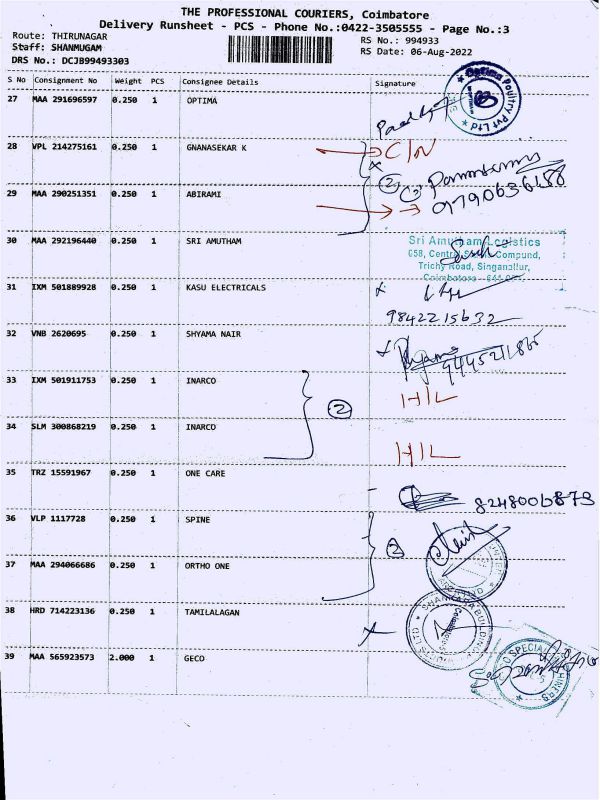 THE PROFESSIONAL COURIERS, Coimbatore
Delivery Runsheet - PCS - Phone No.:0422-3505555 - Page No.:3
Route: THIRUNAGAR
RS No.: 994933
Staff: SHANMUGAM
RS Date: 06-Aug-2022
DRS No.: DCJB99493303
S No Consignment No Weight PCS Consignee Details Signature
27 MAA 291696597 0.250 1 OPTIMA
Optima Poultry Pvt Ltd
28 VPL 214275161 0.250 1 GNANASEKAR K C/N
2
29 MAA 290251351 0.250 1 ABIRAMI
30 MAA 292196440 0.250 1 SRI AMUTHAM
Sri Amutham Logistics
Compound,
Trichy Road, Singanallur,
31 IXM 501889928 0.250 1 KASU ELECTRICALS
9842215632
32 VNB 2620695 0.250 1 SHYAMA NAIR
33 IXM 501911753 0.250 1 INARCO H/L
2
34 SLM 300868219 0.250 1 INARCO H/L
35 TRZ 15591967 0.250 1 ONE CARE
8248006873
36 VLP 1117728 0.250 1 SPINE
2
37 MAA 294066686 0.250 1 ORTHO ONE
38 HRD 714223136 0.250 1 TAMILALAGAN
39 MAA 565923573 2.000 1 GECO